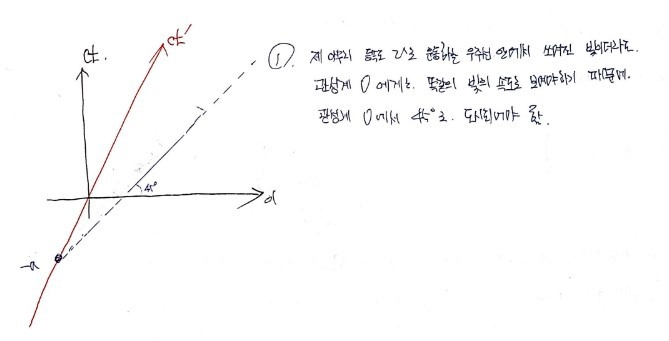 ct.
ct'
① 제 아무리 등속도 v로 운동하는 우주선 안에서 쏘여진 빛이더라도.
관성계 O에게는. 똑같이 빛의 속도로 보여야하기 때문에.
관성계 O에서 45°로. 도시되어야 함.
45°
x
-a